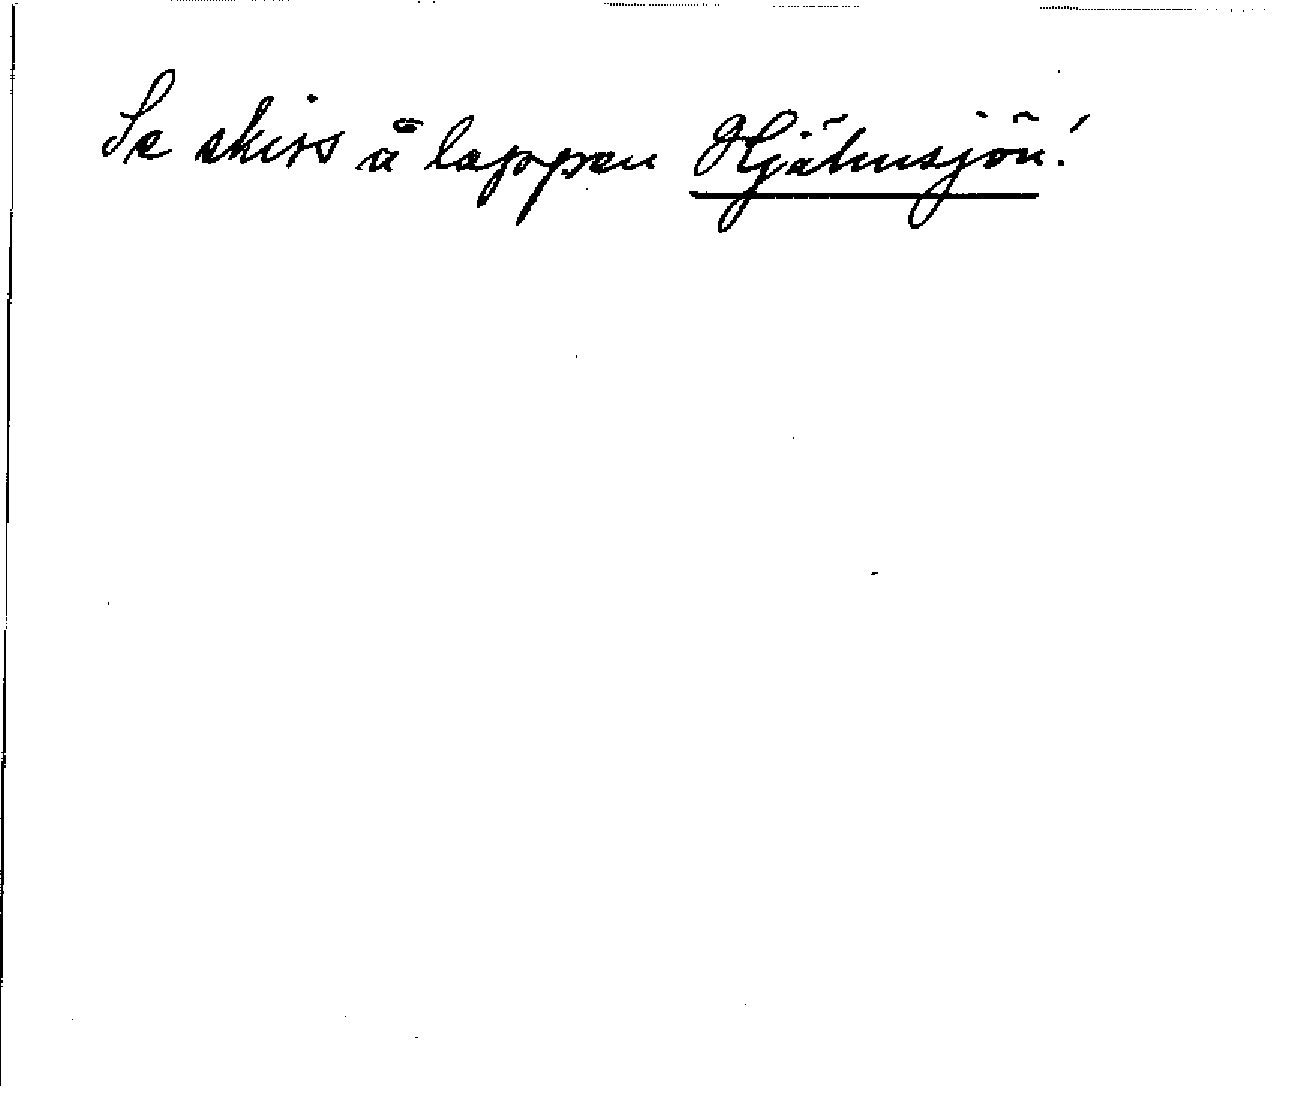 Se skiss å lappen Hjälmsjön!